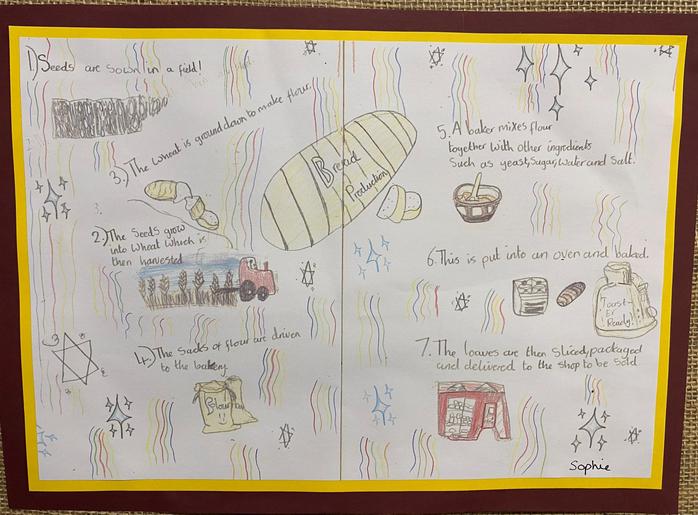 1) Seeds are sown in a field!
3.) The wheat is ground down to make flour.
Bread
Production
2.) The seeds grow
into wheat which is
then harvested
4.) The sacks of flour are driven
to the bakery
Flour
5. A baker mixes flour
together with other ingredients
Such as yeast, sugar, water and salt.
6. This is put into an oven and baked.
Toast-
Er
Ready!
7. The loaves are then sliced, packaged
and delivered to the shop to be sold
Sophie